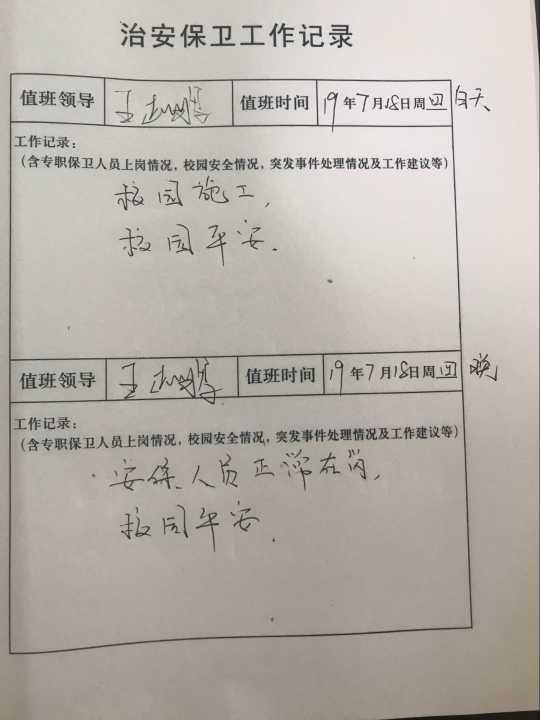 治安保卫工作记录
值班领导 王 值班时间 19年7月18日周四 白天
工作记录：
（含专职保卫人员上岗情况，校园安全情况，突发事件处理情况及工作建议等）
校园施工，
校园平安.
值班领导 王 值班时间 19年7月18日周四 晚
工作记录：
（含专职保卫人员上岗情况，校园安全情况，突发事件处理情况及工作建议等）
安保人员正常在岗，
校园平安.